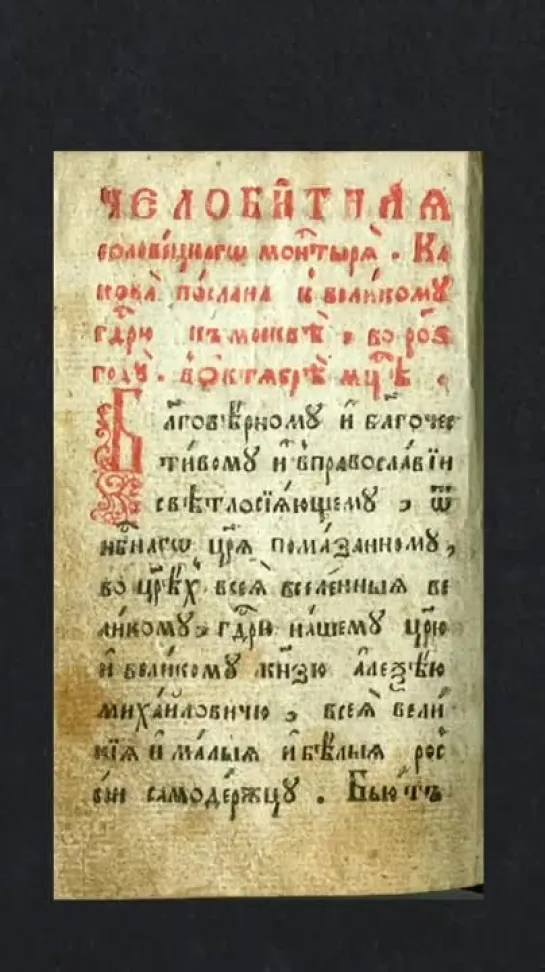 ЧЕЛОБИ́ТНАѦ
соловѣ́цкагѡ мон҇тырѧ̀ . Ка
кова̀ по́слана к̾ вели́кому
гд҇рю къ москвѣ̀ , во
году̀ . в̾ Ѻктѧбрѣ̀ мц҇ѣ .
Бл҃говѣ́рному и҆ бл҃гочес
ти́вому и҆ в̾ правосла́вїи
свѣтлосїѧ́ющему , ѿ
нб҇нагѡ цр҃ѧ пома́занному ,
во цр҃ѣ́хъ всеѧ̀ вселе́нныѧ ве
ли́кому , гд҇рю на́шему цр҃ю
и҆ вели́кому кн҃зю а҆леѯѣ́ю
миха́йловичю , всеѧ̀ вели́
кїѧ и҆ ма́лыѧ и҆ бѣ́лыѧ рос
сі́и самоде́ржцу . Бью́тъ